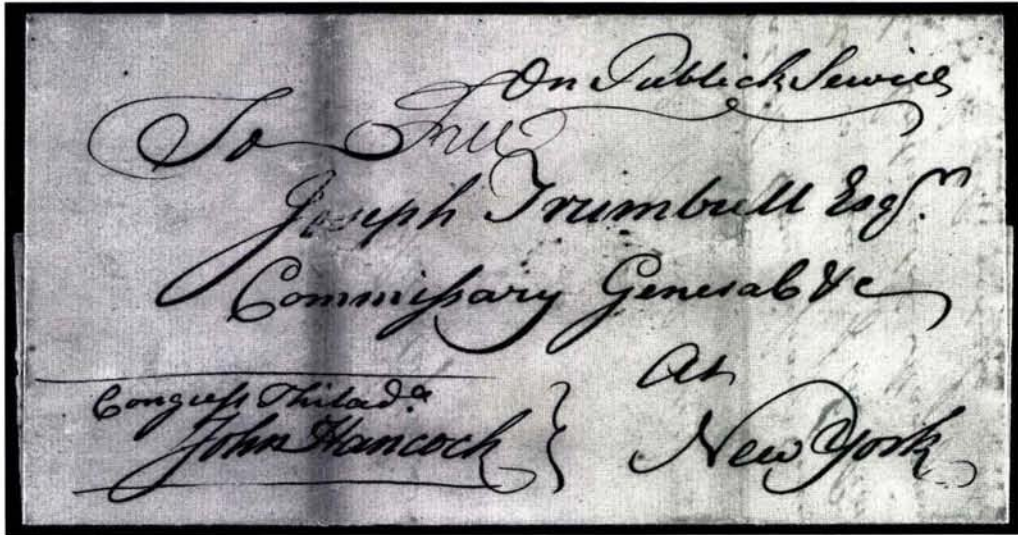 On Publick Service
To Free
Joseph Trumbull Esqr.
Commissary General &c
At
New York
Congress Philada.
John Hancock